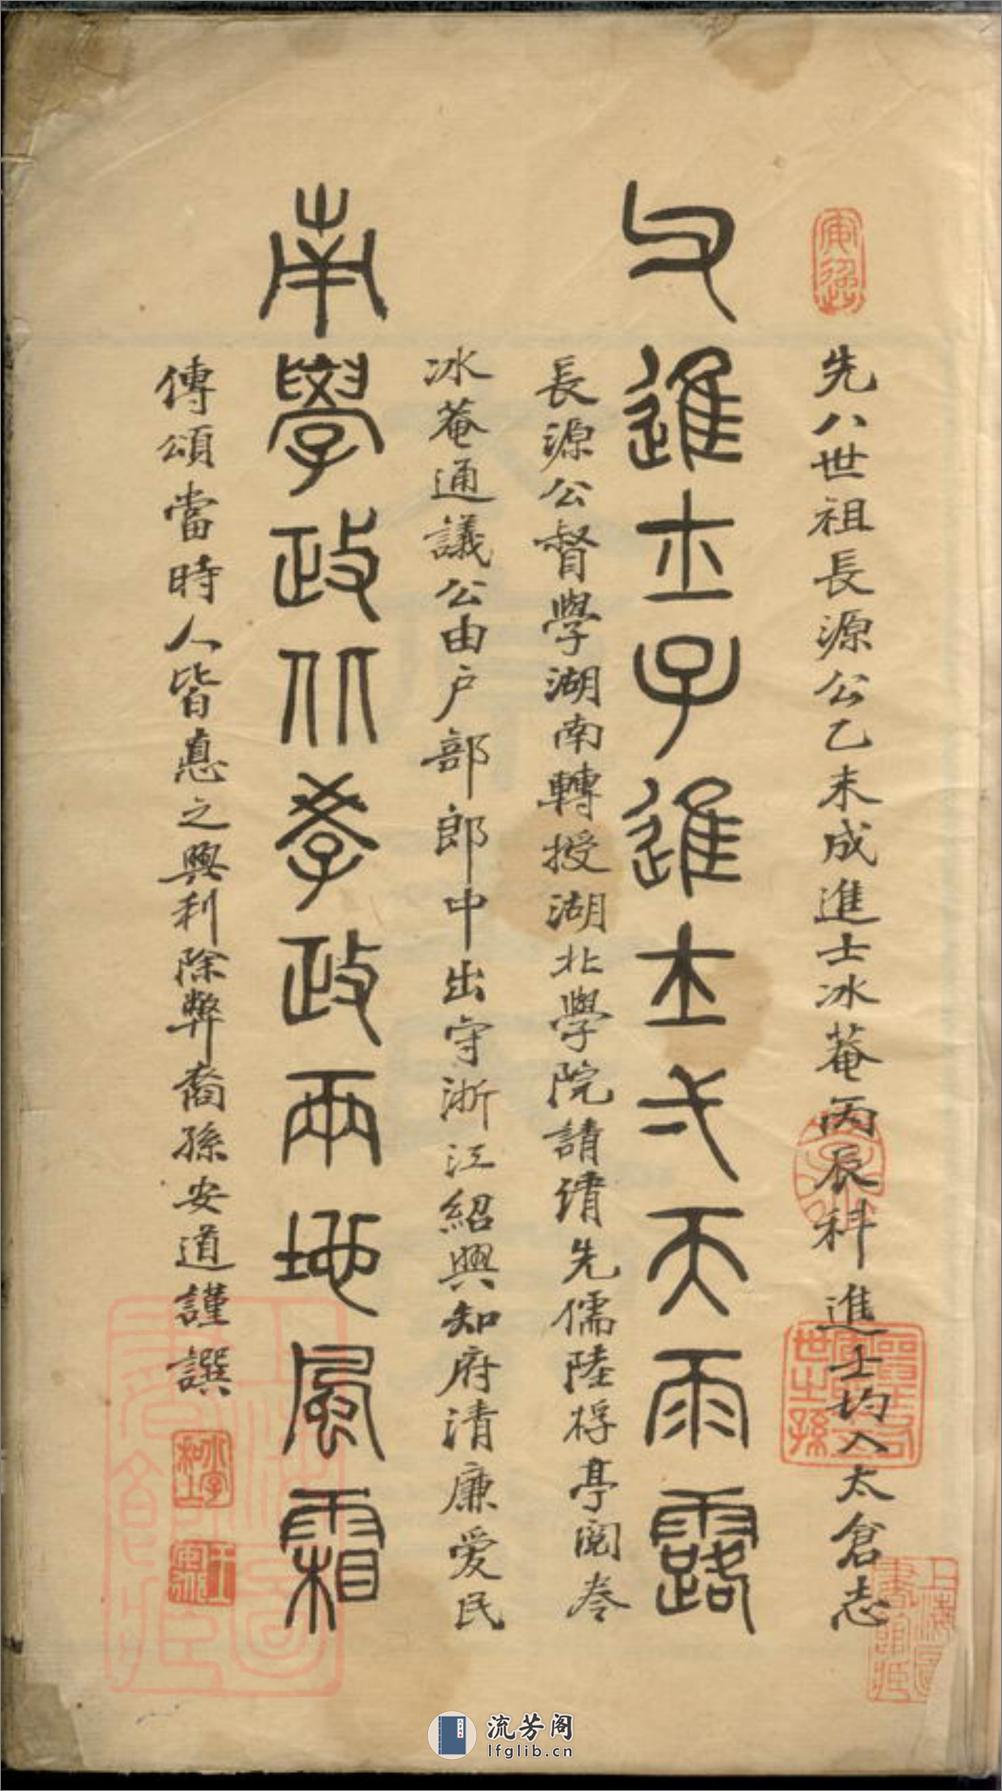 先八世祖長源公乙未成進士冰菴丙辰科進士均入太倉志
父進士子進士弌天雨露
長源公督學湖南轉授湖北學院請先儒陸桴亭閱卷
冰菴通議公由户部郎中出守浙江紹興知府清廉愛民
南學政北學政兩地風霜
傳頌當時人皆惪之興利除弊裔孫安道謹譔
世之孫
上海圖書館藏
上海圖書館藏
流芳阁
lfglib.cn